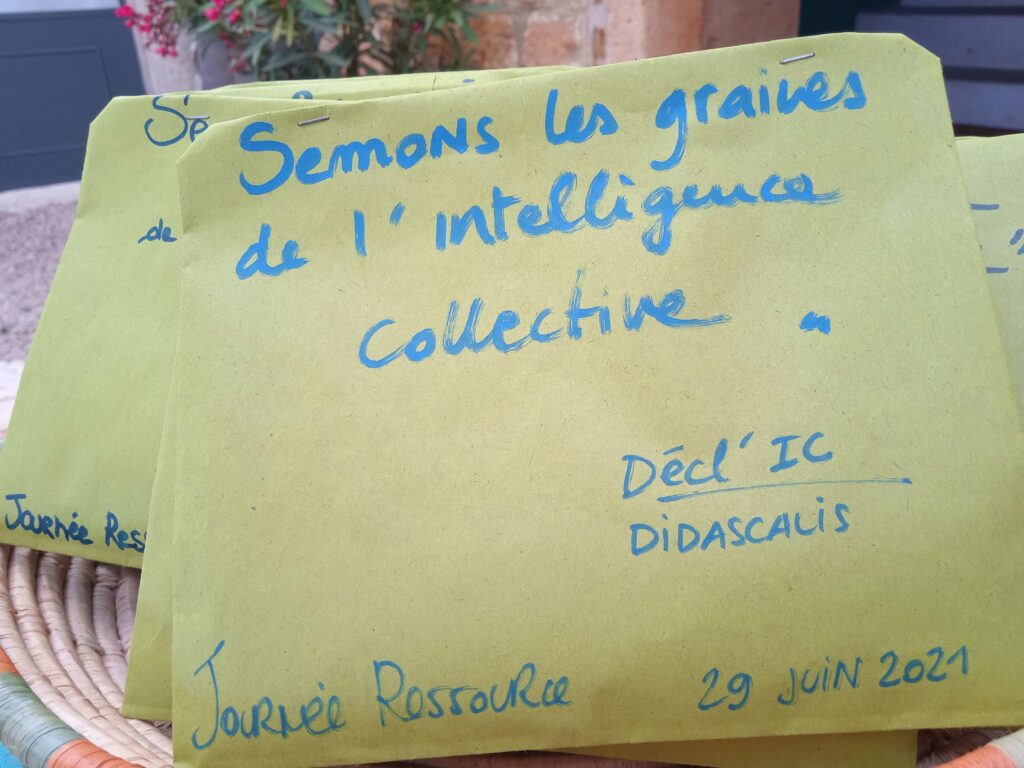 Semons les graines
de l'intelligence
collective "
Décl'IC
DIDASCALIS
Journée Ressource
29 JUIN 2021
Se
de
Journée Ress